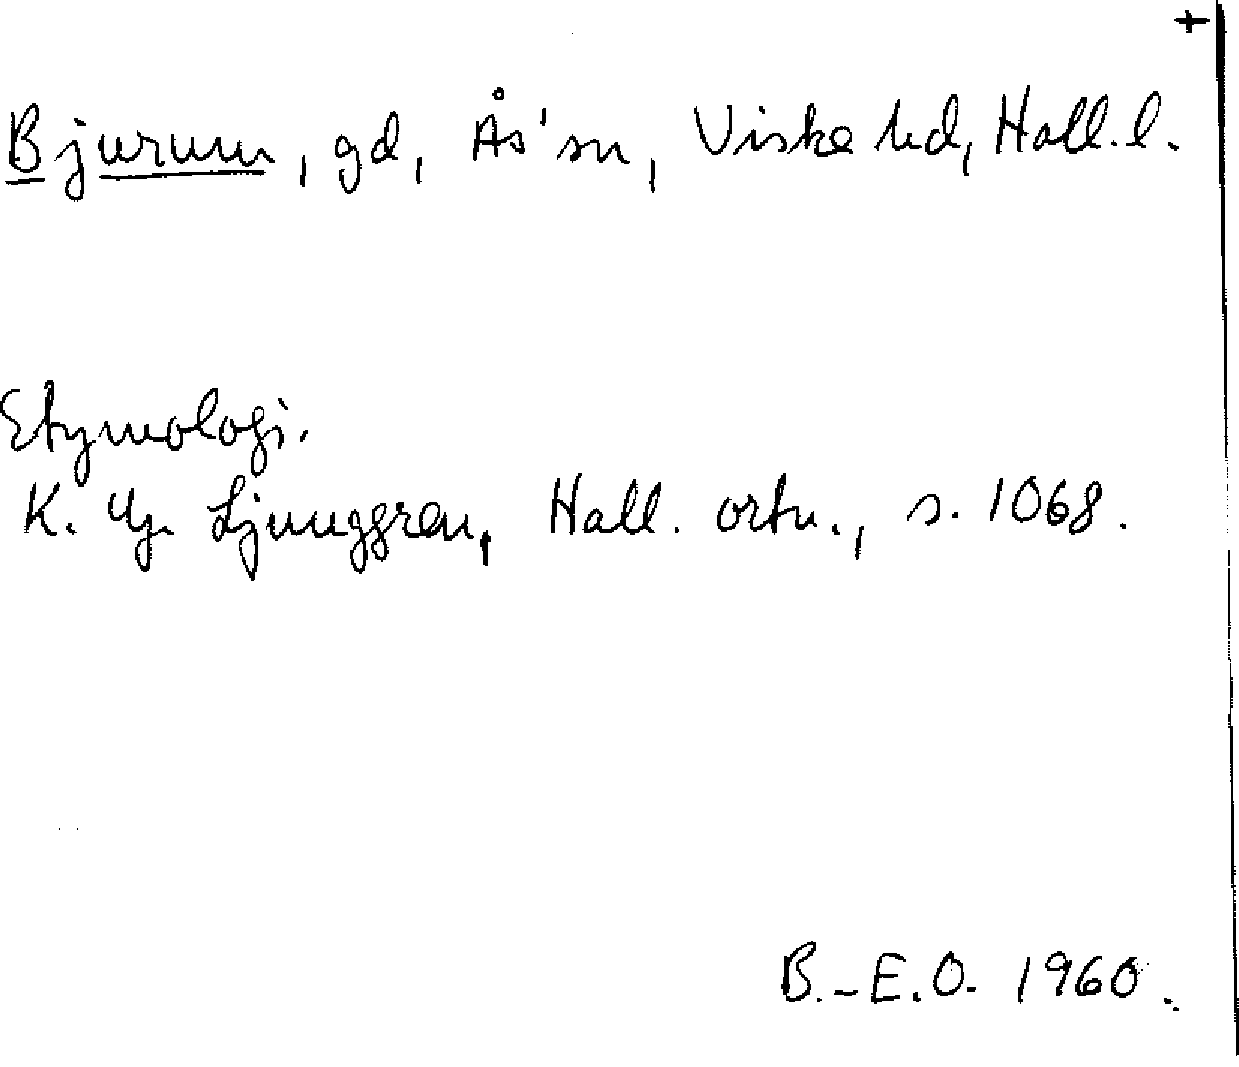 +
Bjurum, gd, Ås' sn, Viske hd, Hall. l.
Etymologi.
K. G. Ljunggren, Hall. ortn., s. 1068.
B.-E.O. 1960.